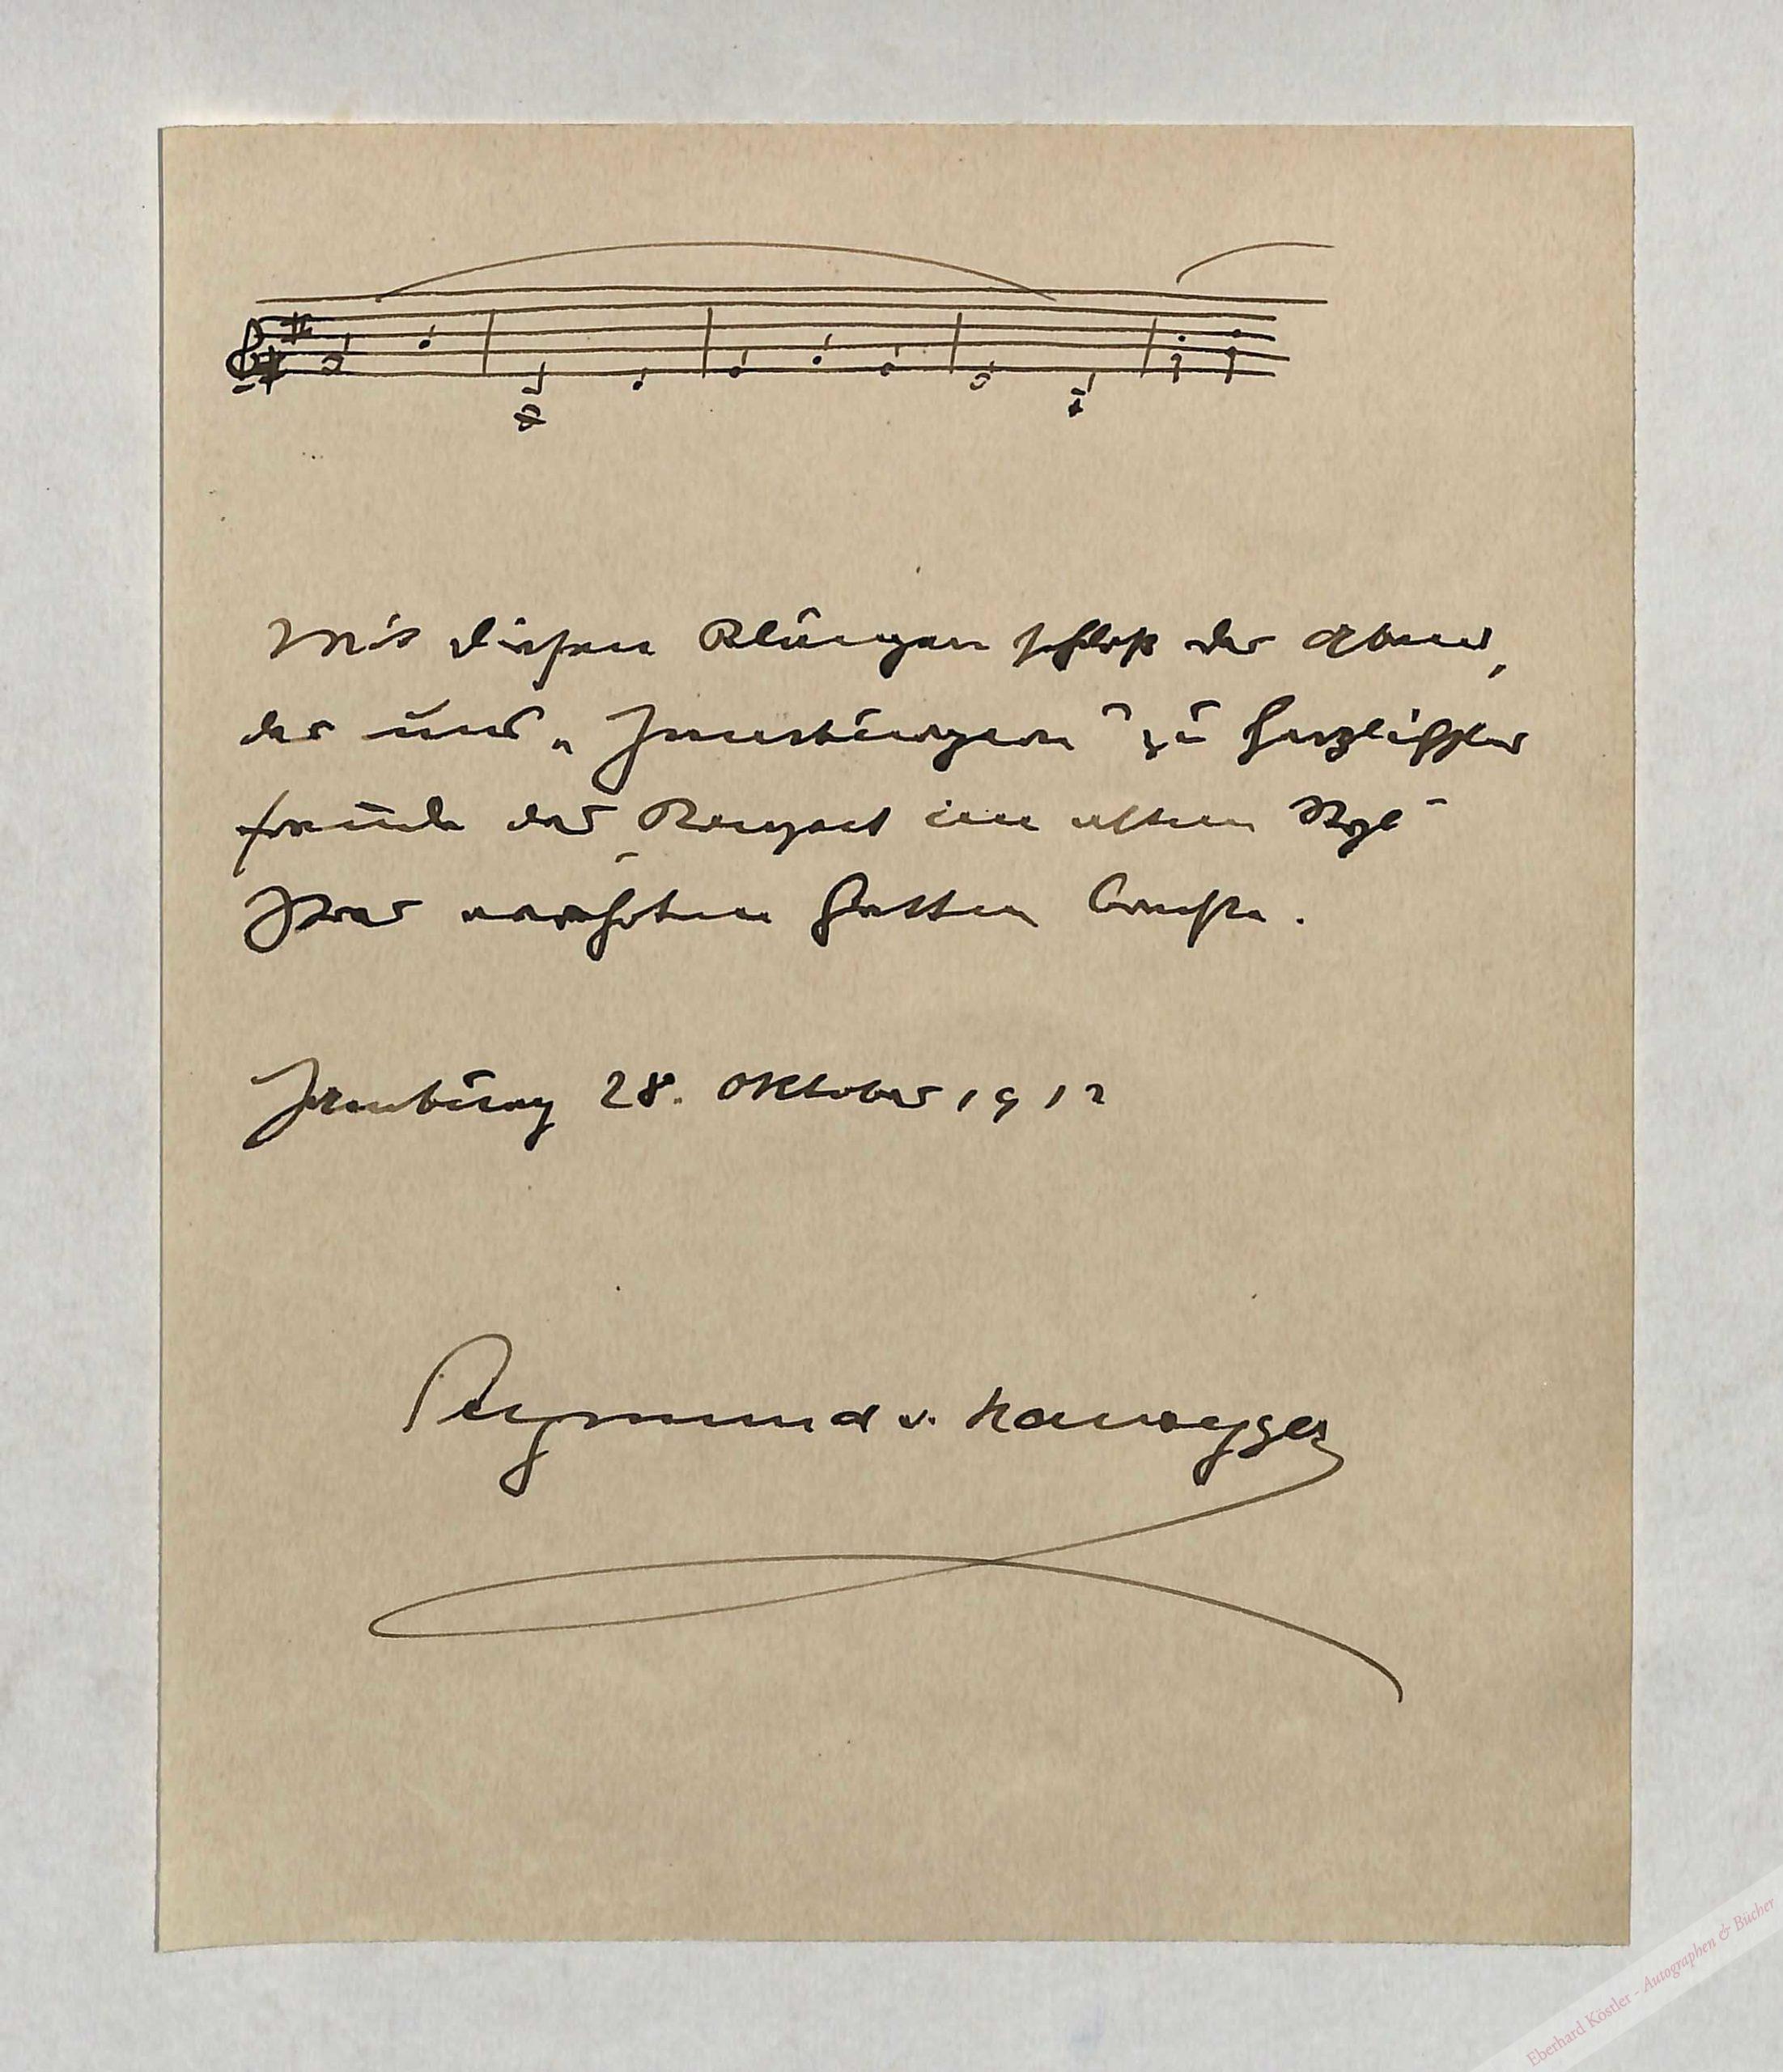 Mit diesen Klängen schloß der Abend,
der uns „Hamburgern“ zu herzlichster
Freude das „Konzert im alten Styl“
Ihres verehrten Gatten brachte.
Hamburg 28. Oktober 1912
Siegmund v. Hausegger
Eberhard Köstler - Autographen & Bücher